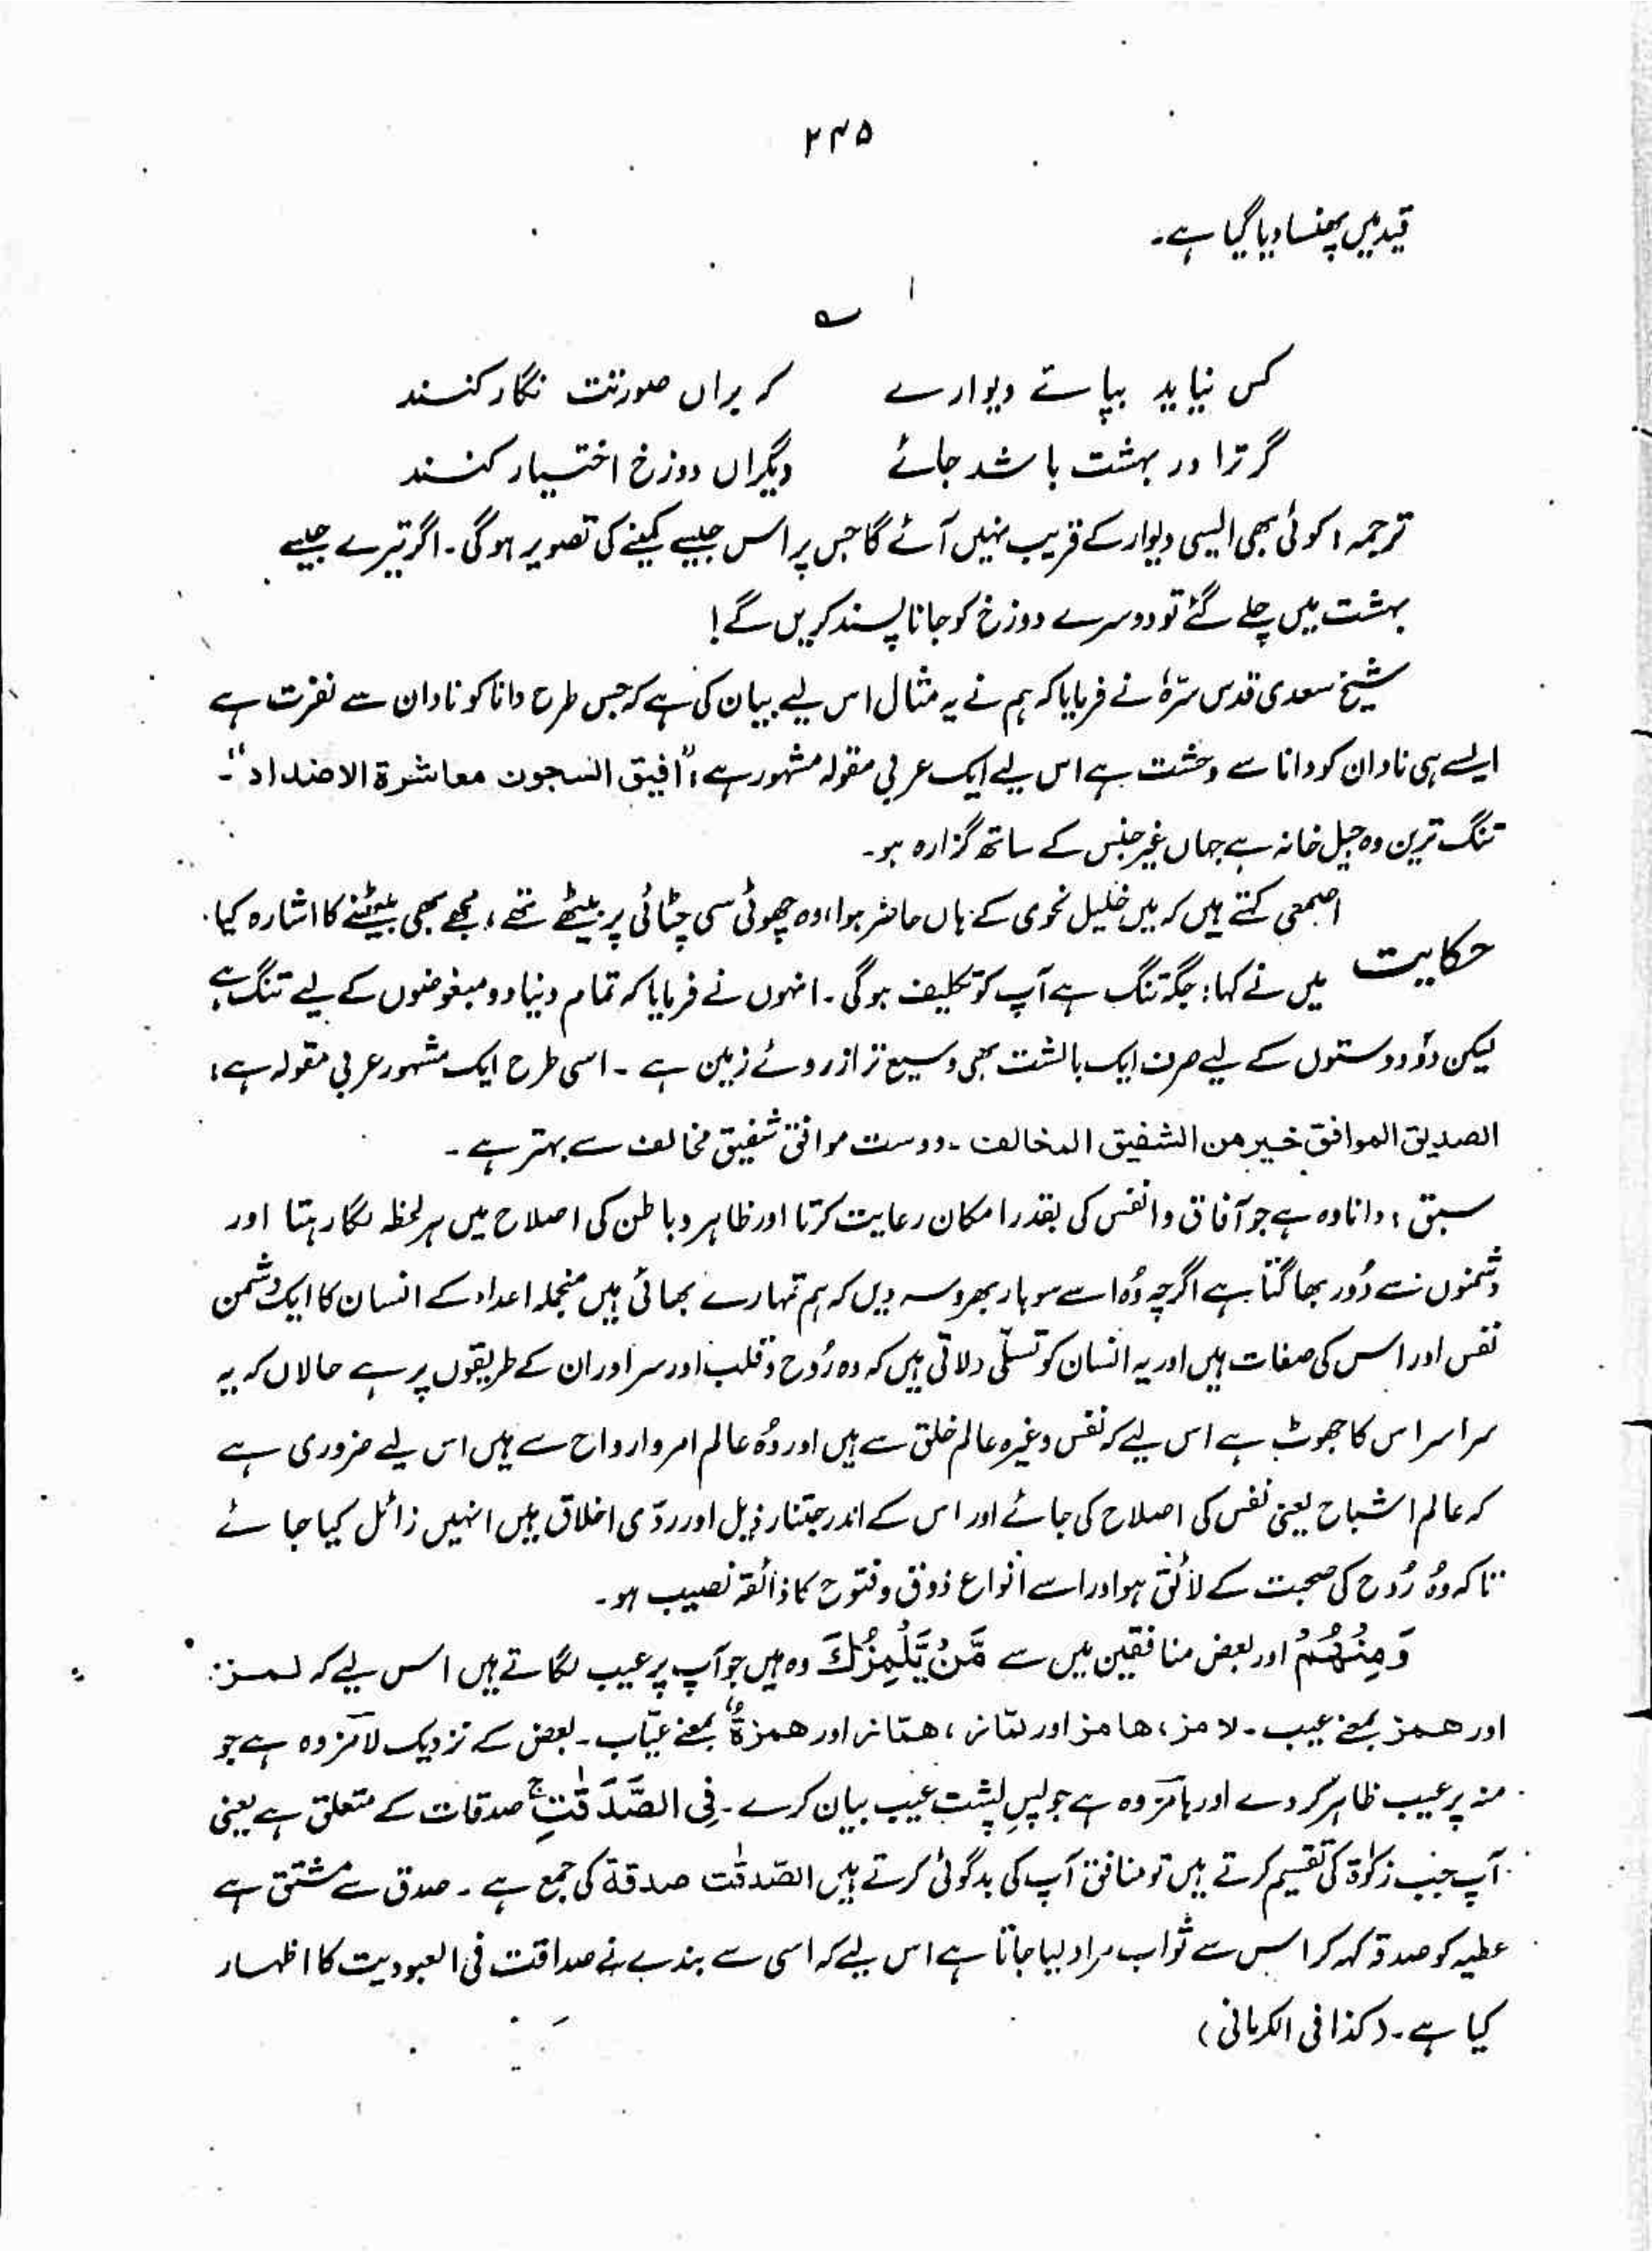 ۲۴۵
قید میں پھنسا دیا گیا ہے۔
؎
کس نیاید بپائے دیوارے کہ براں صورتت نگار کنند
گر ترا در بہشت باشد جائے دیگراں دوزخ اختیار کنند
ترجمہ: کوئی بھی ایسی دیوار کے قریب نہیں آئے گا جس پر اس جیسے کمینے کی تصویر ہوگی۔ اگر تیرے جیسے
بہشت میں چلے گئے تو دوسرے دوزخ کو جانا پسند کریں گے!
شیخ سعدی قدس سرّہٗ نے فرمایا کہ ہم نے یہ مثال اس لیے بیان کی ہے کہ جس طرح دانا کو نادان سے نفرت ہے
ایسے ہی نادان کو دانا سے وحشت ہے اس لیے ایک عربی مقولہ مشہور ہے: "افیق السجون معاشرة الاضداد"۔
تنگ ترین وہ جیل خانہ ہے جہاں غیر جنس کے ساتھ گزارہ ہو۔
حکایت اصمعی کہتے ہیں کہ میں خلیل نحوی کے ہاں حاضر ہوا، وہ چھوٹی سی چٹائی پر بیٹھے تھے، مجھے بھی بیٹھنے کا اشارہ کیا۔
میں نے کہا: جگہ تنگ ہے آپ کو تکلیف ہوگی۔ انہوں نے فرمایا کہ تمام دنیا دو مبغوضوں کے لیے تنگ ہے
لیکن دو دوستوں کے لیے صرف ایک بالشت بھی وسیع تر از روئے زمین ہے۔ اسی طرح ایک مشہور عربی مقولہ ہے:
الصدیق الموافق خیر من الشفیق المخالف۔ دوست موافق شفیق مخالف سے بہتر ہے۔
سبق: دانا وہ ہے جو آفاق و انفس کی بقدر امکان رعایت کرتا اور ظاہر و باطن کی اصلاح میں ہر لحظہ لگا رہتا اور
دشمنوں سے دُور بھاگتا ہے اگرچہ وُہ اسے سو بار بھروسہ دیں کہ ہم تمہارے بھائی ہیں منجملہ اعداء کے انسان کا ایک دشمن
نفس اور اس کی صفات ہیں اور یہ انسان کو تسلّی دلاتی ہیں کہ وہ رُوح و قلب اور سر اور ان کے طریقوں پر ہے حالاں کہ یہ
سراسر اس کا جھوٹ ہے اس لیے کہ نفس وغیرہ عالم خلق سے ہیں اور وُہ عالم امر و ارواح سے ہیں اس لیے ضروری ہے
کہ عالم اشباح یعنی نفس کی اصلاح کی جائے اور اس کے اندر جتنا رذیل اور ردّی اخلاق ہیں انہیں زائل کیا جائے
تاکہ وُہ رُوح کی صحبت کے لائق ہو اور اسے انواع ذوق و فتوح کا ذائقہ نصیب ہو۔
وَمِنْهُمْ اور بعض منافقین میں سے مَّنْ يَّلْمِزُكَ وہ ہیں جو آپ پر عیب لگاتے ہیں اس لیے کہ لمز:
اور ھمز بمعنے عیب۔ لامز، ھامز اور لمّاز، ھمّاز اور ھمزةٌ بمعنے عیّاب۔ بعض کے نزدیک لامز وہ ہے جو
منہ پر عیب ظاہر کر دے اور ہامز وہ ہے جو پسِ پشت عیب بیان کرے۔ فِی الصَّدَقٰتِ ج صدقات کے متعلق ہے یعنی
آپ جب زکوٰۃ کی تقسیم کرتے ہیں تو منافق آپ کی بدگوئی کرتے ہیں الصّدقٰت صدقة کی جمع ہے۔ صدق سے مشتق ہے
عطیہ کو صدقہ کہہ کر اس سے ثواب مراد لیا جاتا ہے اس لیے کہ اسی سے بندے نے صداقت فی العبودیت کا اظہار
کیا ہے۔ (کذا فی الکرمانی)